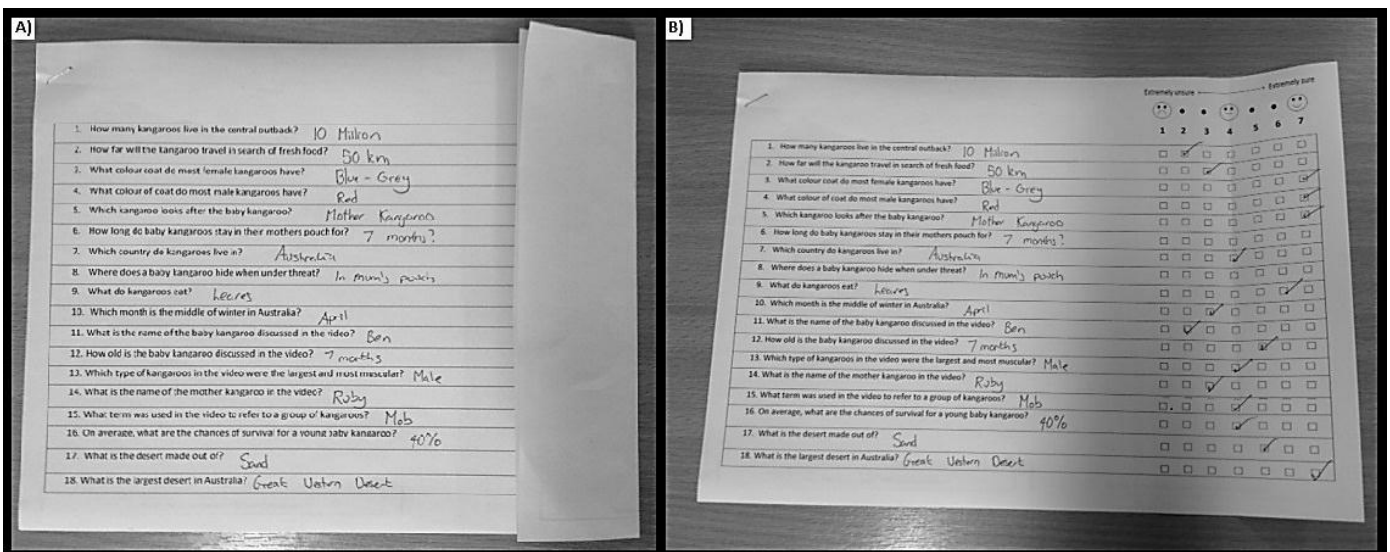 A)
1. How many kangaroos live in the central outback? 10 Million
2. How far will the kangaroo travel in search of fresh food? 50 km
3. What colour coat do most female kangaroos have? Blue - Grey
4. What colour of coat do most male kangaroos have? Red
5. Which kangaroo looks after the baby kangaroo? Mother Kangaroo
6. How long do baby kangaroos stay in their mothers pouch for? 7 months?
7. Which country do kangaroos live in? Australia
8. Where does a baby kangaroo hide when under threat? In mum's pouch
9. What do kangaroos eat? Leaves
10. Which month is the middle of winter in Australia? April
11. What is the name of the baby kangaroo discussed in the video? Ben
12. How old is the baby kangaroo discussed in the video? 7 months
13. Which type of kangaroos in the video were the largest and most muscular? Male
14. What is the name of the mother kangaroo in the video? Ruby
15. What term was used in the video to refer to a group of kangaroos? Mob
16. On average, what are the chances of survival for a young baby kangaroo? 40%
17. What is the desert made out of? Sand
18. What is the largest desert in Australia? Great Western Desert
B)
Extremely unsure Extremely sure
1 2 3 4 5 6 7
1. How many kangaroos live in the central outback? 10 Million
2. How far will the kangaroo travel in search of fresh food? 50 km
3. What colour coat do most female kangaroos have? Blue - Grey
4. What colour of coat do most male kangaroos have? Red
5. Which kangaroo looks after the baby kangaroo? Mother Kangaroo
6. How long do baby kangaroos stay in their mothers pouch for? 7 months?
7. Which country do kangaroos live in? Australia
8. Where does a baby kangaroo hide when under threat? In mum's pouch
9. What do kangaroos eat? Leaves
10. Which month is the middle of winter in Australia? April
11. What is the name of the baby kangaroo discussed in the video? Ben
12. How old is the baby kangaroo discussed in the video? 7 months
13. Which type of kangaroos in the video were the largest and most muscular? Male
14. What is the name of the mother kangaroo in the video? Ruby
15. What term was used in the video to refer to a group of kangaroos? Mob
16. On average, what are the chances of survival for a young baby kangaroo? 40%
17. What is the desert made out of? Sand
18. What is the largest desert in Australia? Great Western Desert